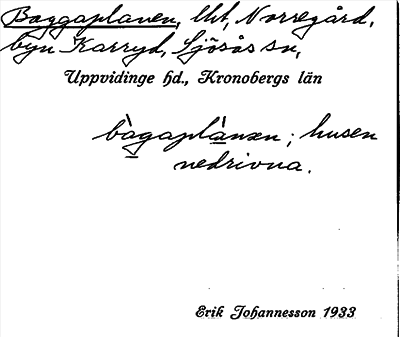 Baggaplanen, lht, Norregård,
byn Karryd, Sjösås sn,
Uppvidinge hd., Kronobergs län
bàgaplànan; husen
nedrivna.
Erik Johannesson 1933